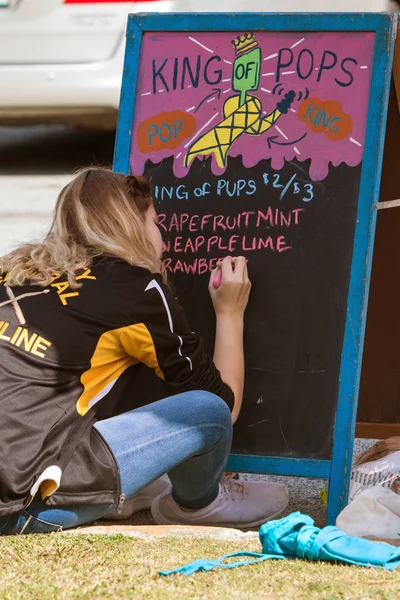 KING OF POPS
POP
KING
ING OF PUPS $2/$3
RAPEFRUIT MINT
NEAPPLE LIME
RAWBE
LINE